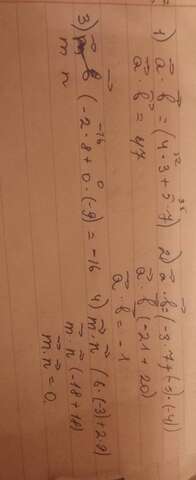 1) a⃗ · b⃗ = (4 · 3 + 5 · 7)
a⃗ · b⃗ = 47
2) a⃗ · b⃗ = (-3 · 7 + (-5) · (-4))
a⃗ · b⃗ (-21 + 20)
a⃗ · b⃗ = -1
3) m⃗ n⃗ (-2 · 8 + 0 · (-9)) = -16
4) m⃗ · n⃗ (6 · (-3) + 2 · 9)
m⃗ · n⃗ (-18 + 18)
m⃗ · n⃗ = 0